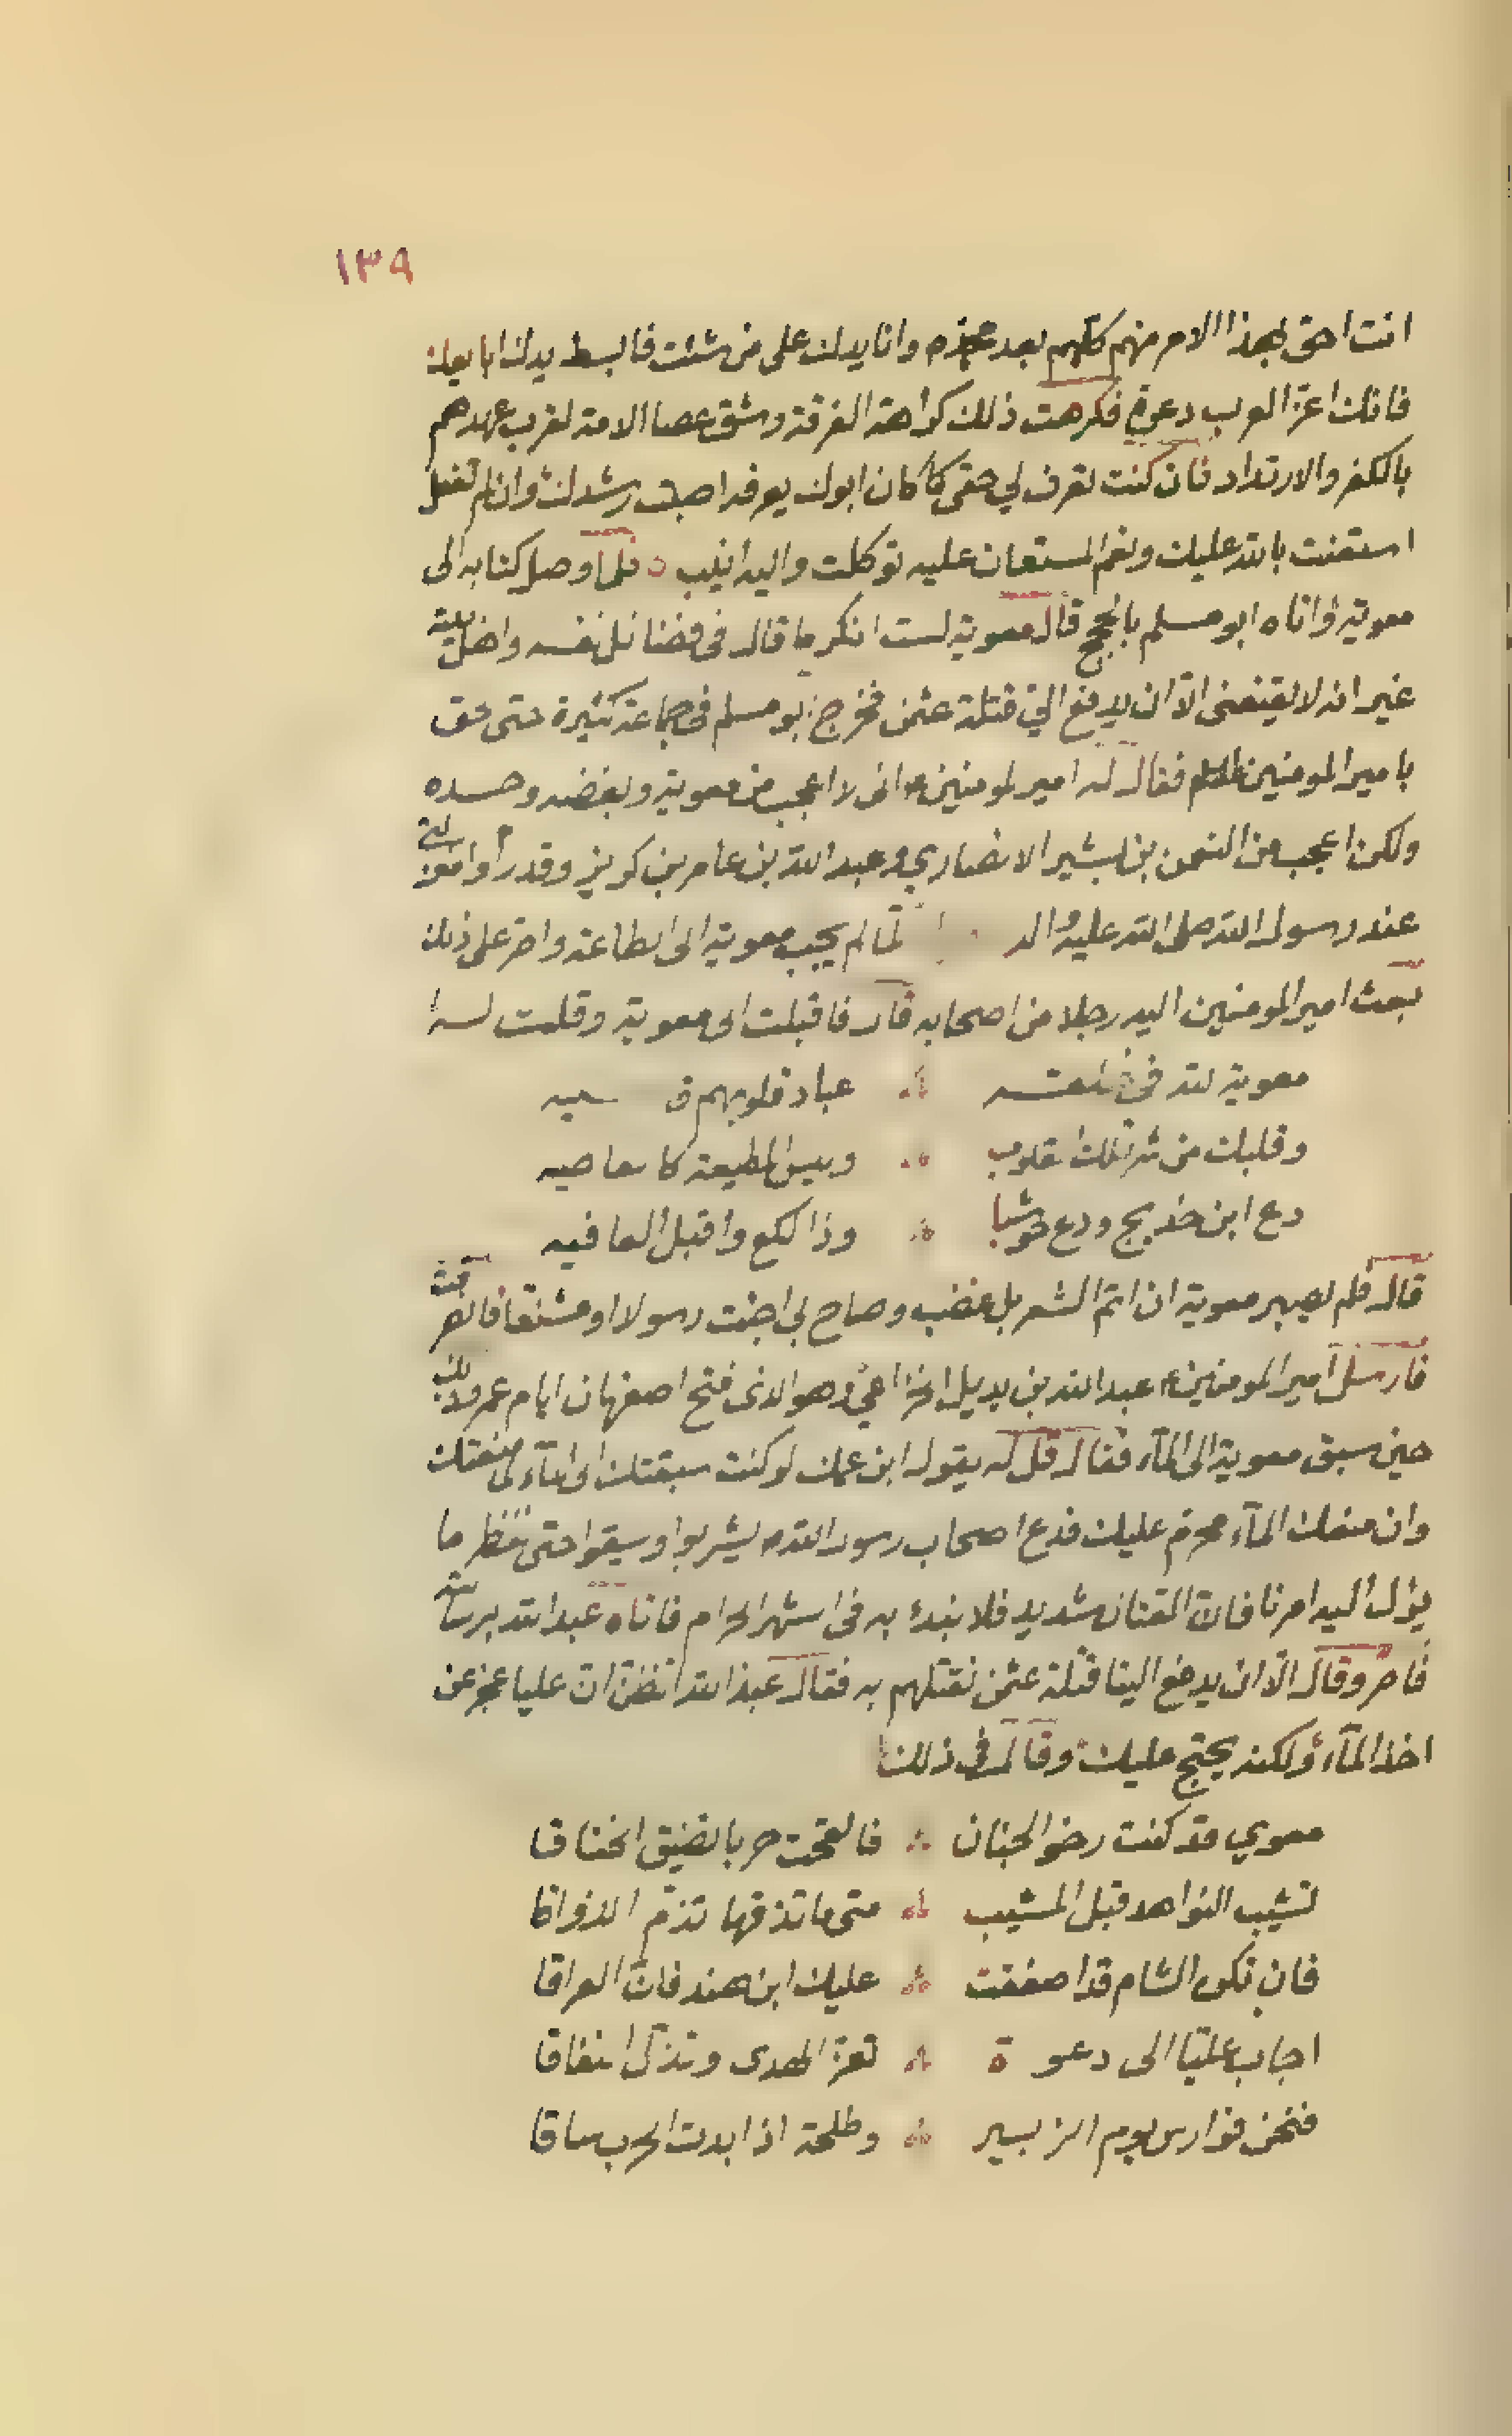 ١٣٩
انت احق بهذا الامر منهم كلهم بعد وانا يدك على من شئت فابسط يدك ابايعك
فانك اعز العرب دعوة فكرهت ذلك كراهة الفرقة وشق عصا الامة لقرب عهدهم
بالكفر والارتداد فان كنت تعرف لي حقي كما كان ابوك يعرفه اصبت رشدك وان لم تفعل
استعنت بالله عليك ونعم المستعان عليه توكلت واليه انيب فلما وصل كتابه الى
معوية واتاه ابو مسلم بالحجج قال معوية لست انكر ما قال في فضائل نفسه واهل بيته
غير انه لا يقنعني الا ان يدفع الي قتلة عثمن فخرج ابو مسلم في جماعة كثيرة حتى لحق
بامير المومنين فقال له امير المومنين ع اني لا اعجب من معوية وبغضه وحسده
ولكن اعجب من النعمن بن بشير الانصاري وعبد الله بن عامر بن كريز وقد راوا منزلتي
عند رسول الله صلى الله عليه واله لما لم يجب معوية الى الطاعة واصر على ذلك
بعث امير المومنين اليه رجلا من اصحابه قال فاقبلت الى معوية وقلت له
معوية لله في خلقه عباد قلوبهم
وقلبك من شر تلك القلوب وليس المطيعة كالعاصيه
دع ابن خديج ودع حوشبا وذا كلع واقبل العافيه
قال فلم يصبر معوية ان اتم الشعر بل غضب وصاح بي اجئت رسولا او مشنعا فانصرفت
فارسل امير المومنين ع عبد الله بن بديل الخزاعي وهو الذي فتح اصفهان ايام عمر وذلك
حين سبق معوية الى الماء فقال قل له يقول ابن عمك لو كنت سبقتك الى الماء لما منعتك
وان منعك الماء محرم عليك فدع اصحاب رسول الله يشربوا ويسقوا حتى ننظر ما
يؤل اليه امرنا فان القتال شديد فلا نبدء به في الشهر الحرام فاتاه عبد الله برسالته
فاصر وقال الا ان يدفع الينا قتلة عثمن نقتلهم به فقال عبد الله اتظن ان عليا عجز عن
اخذ الماء ولكنه يحتج عليك وقال في ذلك
معوي قد كنت رخو الخناق فالقحت حربا تضيق الخناقا
تشيب النواهد قبل المشيب متى ما تذقها تذم الذواقا
فان تكن الشام قد اصفقت عليك ابن هند فان العراقا
اجاب عليا الى دعوة تعز الهدى وتذل النفاقا
فنحن فوارس يوم الزبير وطلحة اذا ابدت الحرب ساقا